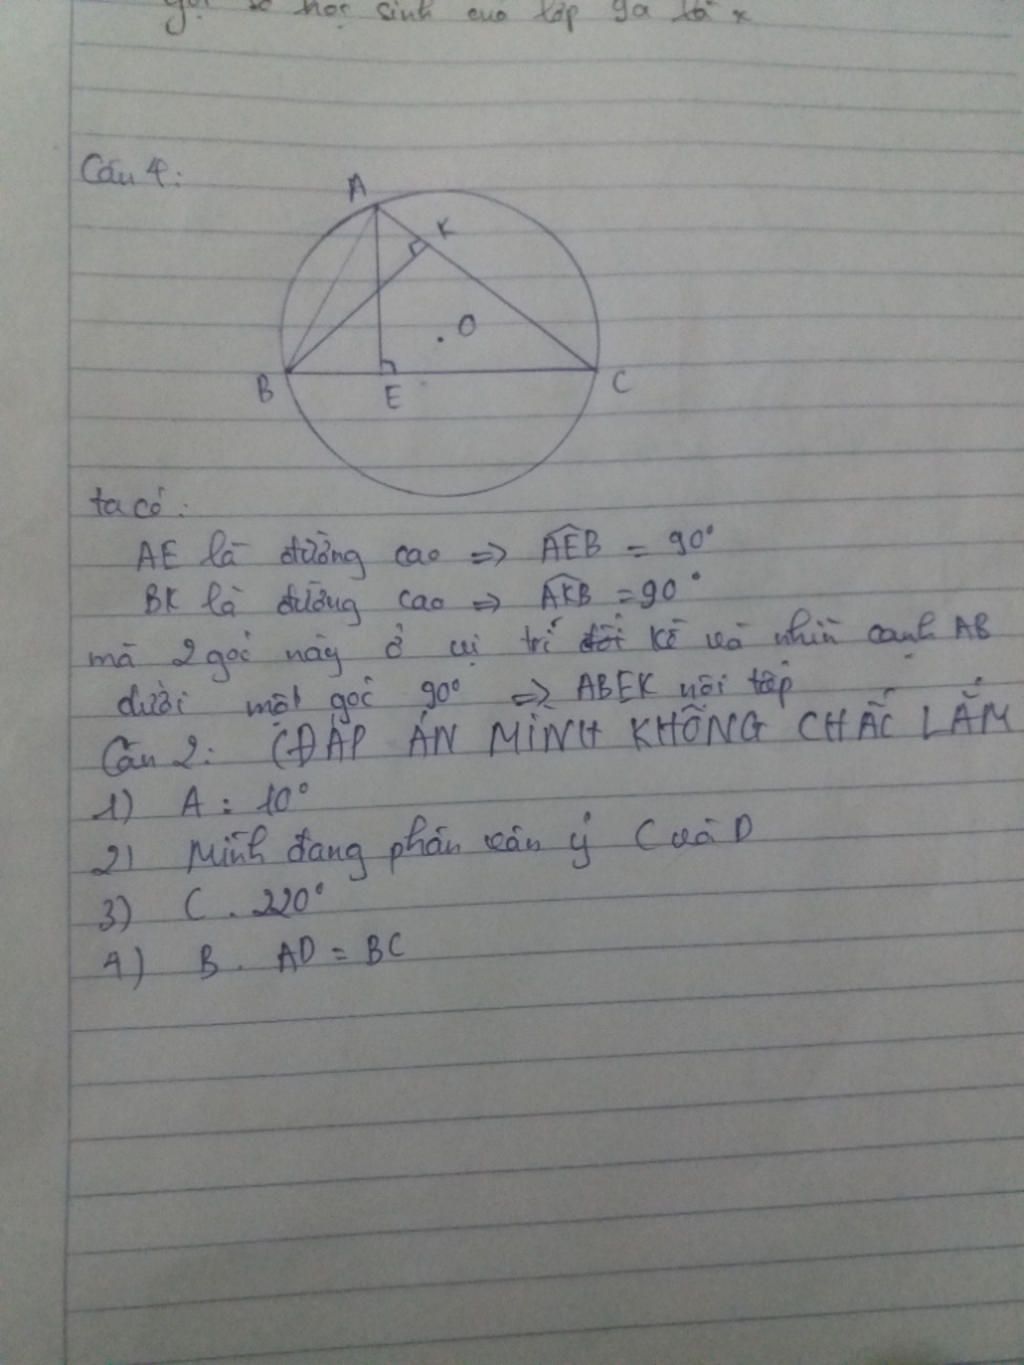 Gọi số học sinh của lớp 9a là x
Câu 4:
A
K
O
B
E
C
ta có:
AE là đường cao => AEB = 90°
BK là đường cao => AKB = 90°
mà 2 góc này ở vị trí kề và nhìn cạnh AB
dưới một góc 90° => ABEK nội tiếp
Câu 2: (ĐÁP ÁN MÌNH KHÔNG CHẮC LẮM
1) A : 10°
2) Mình đang phân vân ý C và D
3) C . 220°
4) B . AD = BC